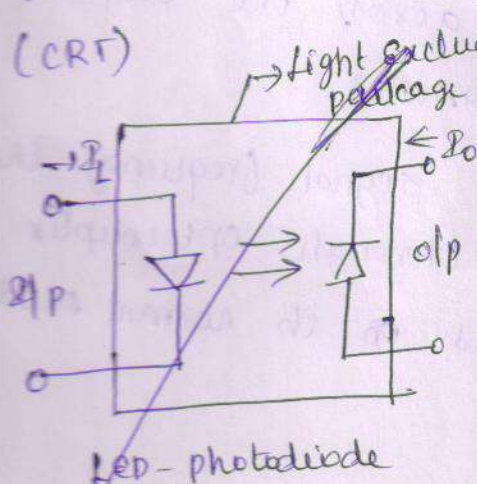 (CRT)
→ Light
package
→ I
← I0
I/P
o/p
LED - photodiode